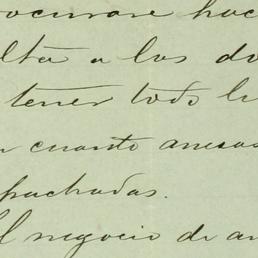 procurare hac
ulta a los do
tener todo l
n cuanto anexa
pachadas.
El negocio de an